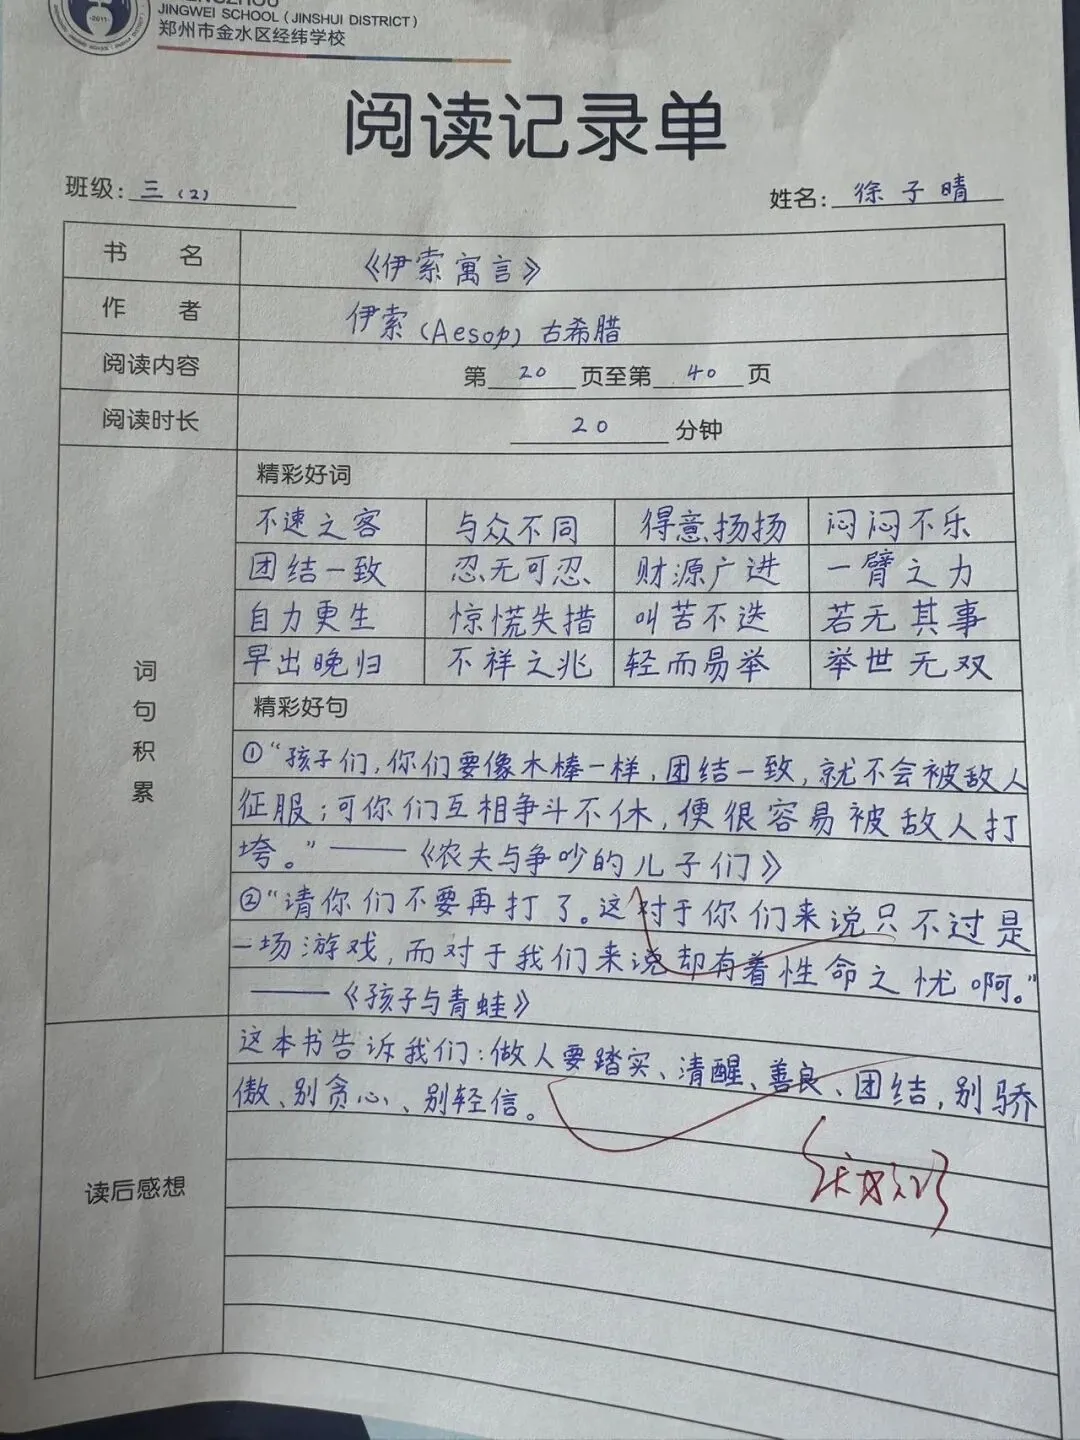 JINGWEI SCHOOL (JINSHUI DISTRICT)
郑州市金水区经纬学校
·2011·
阅读记录单
班级：三（2）
姓名：徐子晴
书 名 《伊索寓言》
作 者 伊索（Aesop）古希腊
阅读内容 第 20 页至第 40 页
阅读时长 20 分钟
词句积累
精彩好词
不速之客 与众不同 得意扬扬 闷闷不乐
团结一致 忍无可忍 财源广进 一臂之力
自力更生 惊慌失措 叫苦不迭 若无其事
早出晚归 不祥之兆 轻而易举 举世无双
精彩好句
①“孩子们，你们要像木棒一样，团结一致，就不会被敌人
征服；可你们互相争斗不休，便很容易被敌人打
垮。”——《农夫与争吵的儿子们》
②“请你们不要再打了。这对于你们来说只不过是
一场游戏，而对于我们来说却有着性命之忧啊。”
——《孩子与青蛙》
读后感想
这本书告诉我们：做人要踏实、清醒、善良、团结，别骄
傲、别贪心、别轻信。